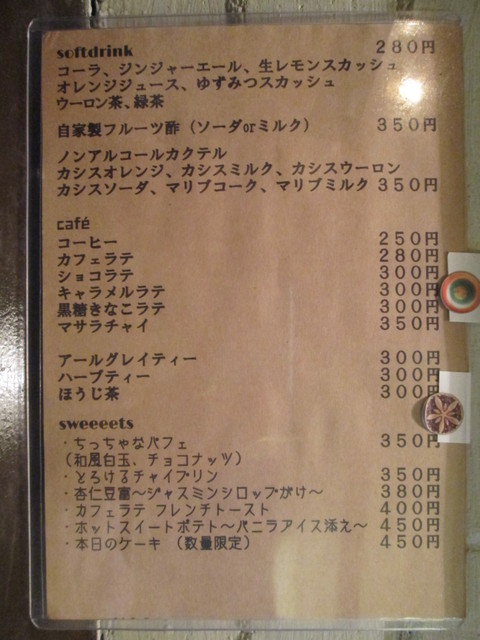 softdrink 280円
コーラ、ジンジャーエール、生レモンスカッシュ
オレンジジュース、ゆずみつスカッシュ
ウーロン茶、緑茶
自家製フルーツ酢（ソーダorミルク） 350円
ノンアルコールカクテル
カシスオレンジ、カシスミルク、カシスウーロン
カシスソーダ、マリブコーク、マリブミルク 350円
café
コーヒー 250円
カフェラテ 280円
ショコラテ 300円
キャラメルラテ 300円
黒糖きなこラテ 300円
マサラチャイ 350円
アールグレイティー 300円
ハーブティー 300円
ほうじ茶 300円
sweeeets
・ちっちゃなパフェ 350円
（和風白玉、チョコナッツ）
・とろけるチャイプリン 350円
・杏仁豆富～ジャスミンシロップがけ～ 380円
・カフェラテ フレンチトースト 400円
・ホットスイートポテト～バニラアイス添え～ 450円
・本日のケーキ （数量限定） 450円